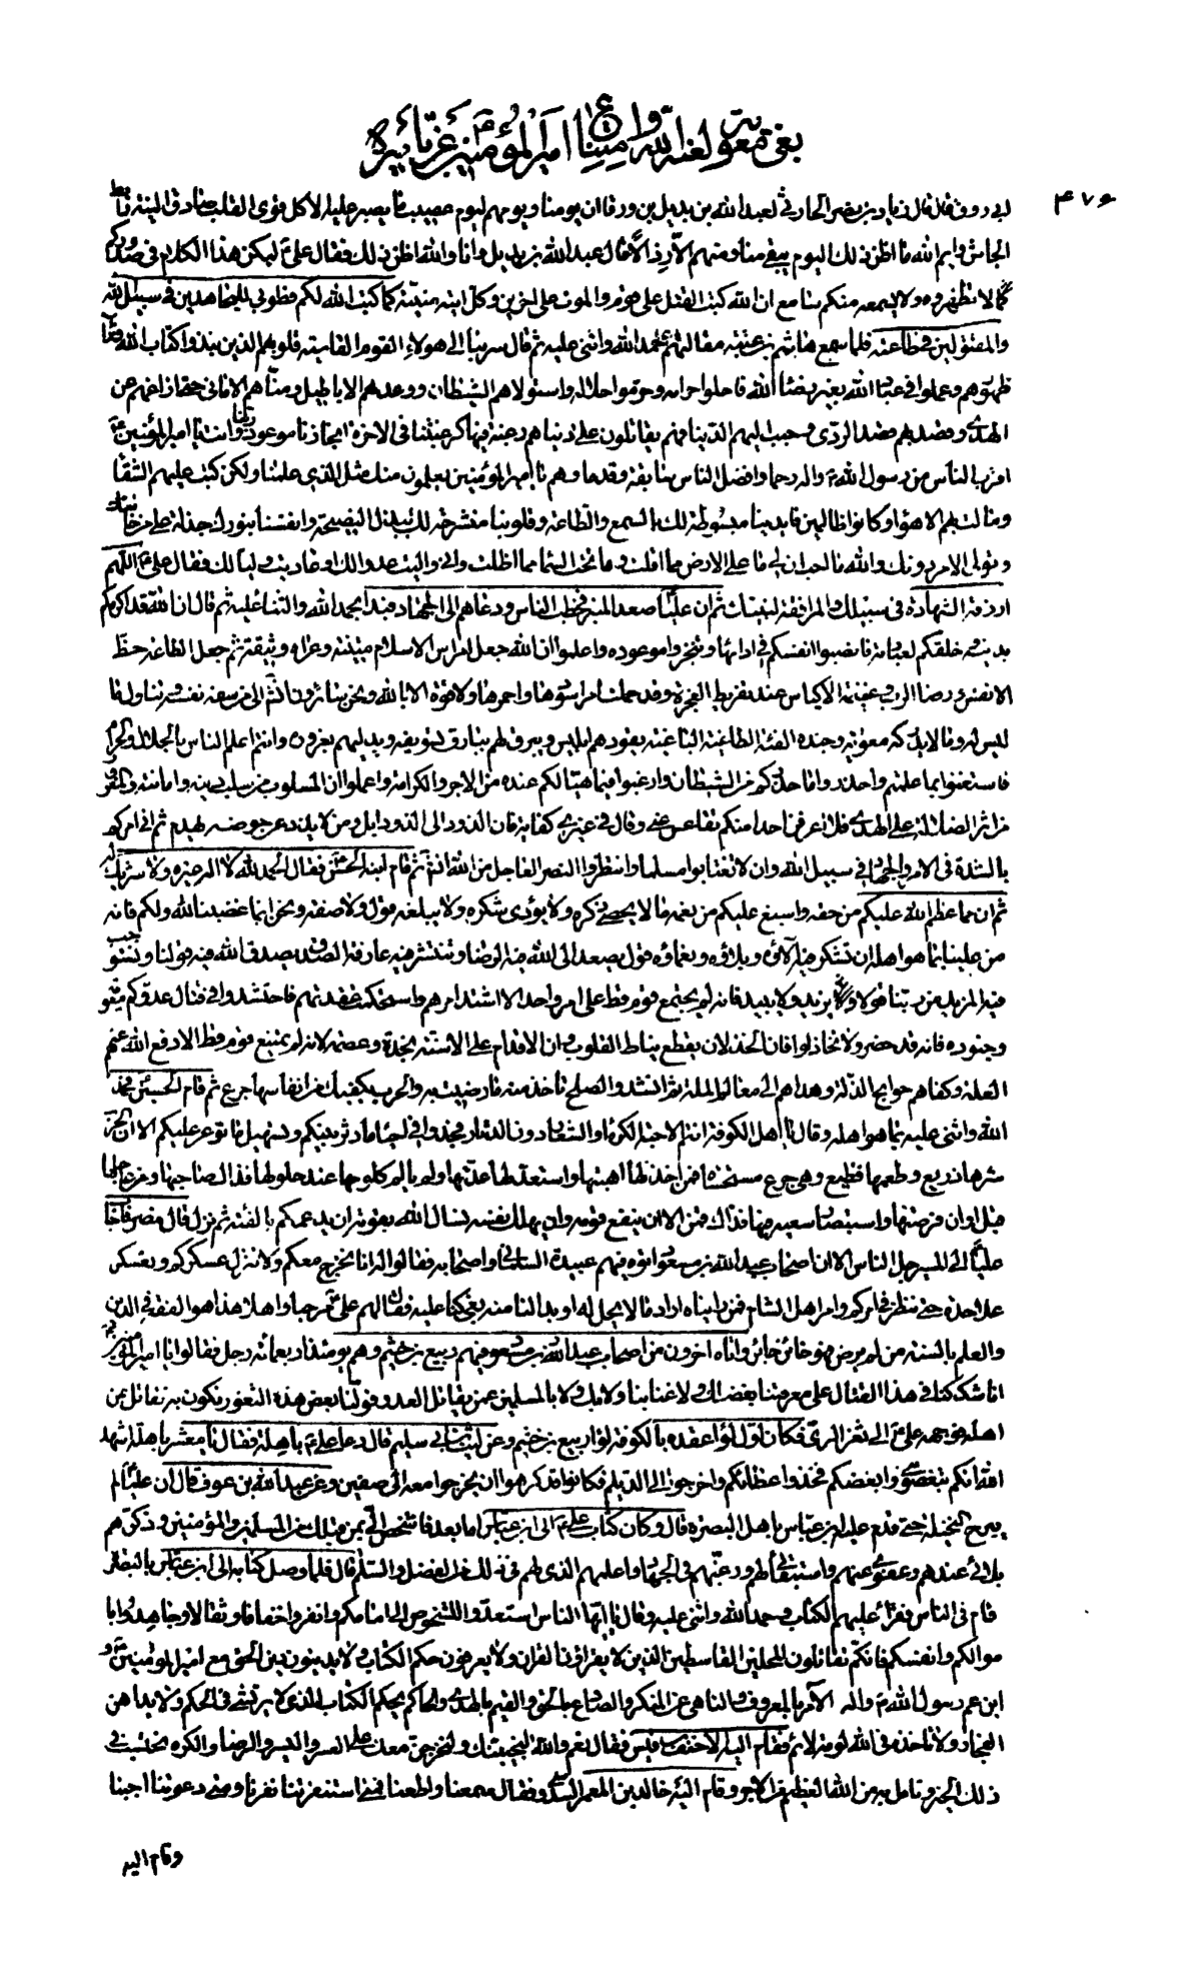 بغى معوية لعنه الله وامتناع امير المؤمنين عن تاميره
٤٧٦
ابى روق قال قال زياد بن نضر الحارثى لعبد الله بن بديل بن ورقا ان يومنا ويومهم ليوم عصيب ما يصبر عليه الا كل قوى القلب صادق النية رابط
الجاش وايم الله ما اظن ذلك اليوم يبقى منا ومنهم الا الرذال قال عبد الله بن بديل وانا والله اظن ذلك فقال علىّ ع ليكن هذا الكلام فى صدوركم
لا تظهروه ولا يسمعه منكم سامع ان الله كتب القتل على قوم والموت على اخرين وكل اتيه منيته كما كتب الله لكم فطوبى للمجاهدين فى سبيل الله
والمقتولين فى طاعته فلما سمع هاشم بن عتبة مقالتهم حمد الله واثنى عليه ثم قال سر بنا الى هؤلاء القوم القاسية قلوبهم الذين نبذوا كتاب الله وراء
ظهورهم وعملوا فى عباد الله بغير رضا الله فاحلوا حرامه وحرموا حلاله واستولاهم الشيطان ووعدهم الاباطيل ومناهم الامانى حتى ازاغهم عن
الهدى وقصد بهم قصد الردى وحبب اليهم الدنيا فهم يقاتلون على دنياهم رغبة فيها كرغبتنا فى الاخرة انجاز موعود ربنا وانت يا امير المؤمنين
اقرب الناس من رسول الله ص واله رحما وافضل الناس سابقة وقدما وهم يا امير المؤمنين يعلمون منك مثل الذى علمنا ولكن كتب عليهم الشقا
ومالت بهم الاهواء وكانوا ظالمين فايدينا مبسوطة لك بالسمع والطاعة وقلوبنا منشرحة لك ببذل النصيحة وانفسنا بنورك جذلة على من خالفك
وتولى الامر دونك والله ما احب ان لى ما على الارض مما اقلت وما تحت السماء مما اظلت وانى واليت عدوا لك او عاديت وليا لك فقال علىّ ع اللهم
ارزقه الشهادة فى سبيلك والمرافقة لنبيك ثم ان عليّا صعد المنبر فخطب الناس ودعاهم الى الجهاد فبدا بحمد الله والثناء عليه ثم قال ان الله قد اكرمكم
بدينه وخلقكم لعبادته فانصبوا انفسكم فى ادائها وتنجزوا موعوده واعلموا ان الله جعل امراس الاسلام متينة وعراه وثيقة ثم جعل الطاعة حظ
الانفس ورضا الرب وغنيمة الاكياس عند تفريط العجزة وقد حملت امر اسودها واحمرها ولا قوة الا بالله ونحن سائرون انشاء الله الى من سفه نفسه وتناول ما
ليس له وما لا يدركه معوية وجنده الفئة الطاغية الباغية يقودهم ابليس ويبرق لهم ببارق تسويفه ويدليهم بغروره وانتم اعلم الناس بالحلال والحرام
فاستغنوا بما علمتم واحذروا ما حذركم من الشيطان وارغبوا فيما هيّا لكم عنده من الاجر والكرامة واعلموا ان المسلوب من سلب دينه وامانته والمغرور
من اثر الضلالة على الهدى فلا اعرفن احدا منكم تقاعس عنى وقال فى غيرى كفاية فان الذود الى الذود ابل ومن لا يذد عن حوضه يهدم ثم انى امركم
بالشدة فى الامر والجهاد فى سبيل الله وان لا تغتابوا مسلما وانتظروا النصر العاجل من الله انشاء الله ثم قام ابنه الحسن ع فقال الحمد لله لا اله غيره ولا شريك له
ثم ان مما عظم الله عليكم من حقه واسبغ عليكم من نعمه ما لا يحصى ذكره ولا يؤدى شكره ولا يبلغه قول ولا صفة ونحن انما غضبنا لله ولكم فانه
من علينا بما هو اهله ان تشكر فيه آلاؤه وبلاؤه ونعماؤه قول يصعد الى الله فيه الرضا وتنتشر فيه عارفة الصدق يصدق الله فيه قولنا ونستوجب
فيه المزيد من ربنا قولا يزيد ولا يبيد فانه لم يجتمع قوم قط على امر واحد الا اشتد امرهم واستحكمت عقدتهم فاحتشدوا فى قتال عدوكم معوية
وجنوده فانه قد حضر ولا تخاذلوا فان الخذلان يقطع نياط القلوب وان الاقدام على الاسنة نجدة وعصمة لانه لم يمتنع قوم قط الا دفع الله عنهم
العلة وكفاهم جوايح الذلة وهداهم الى معالم الملة ثم انشد والصلح تأخذ منه ما رضيت به والحرب يكفيك من انفاسها جرع ثم قام الحسين ع فحمد
الله واثنى عليه بما هو اهله وقال يا اهل الكوفة انتم الاحبة الكرماء والشعار دون الدثار فجدوا فى احياء ما دثر بينكم وتسهيل ما توعر عليكم الا ان الحرب
شرها ذريع وطعمها فظيع وهى جرع مستحساة فمن اخذ لها اهبتها واستعد لها عدتها ولم يالم كلومها عند حلولها فذاك صاحبها ومن عاجلها
قبل اوان فرصتها واستبصار سعيه فيها فذاك قمن الا ان ينفع قومه وان يهلك نفسه نسال الله بقوته ان يدعمكم بالفئة ثم نزل قال نصر فاجاب
عليّا الى المسير جل الناس الا ان اصحاب عبد الله بن مسعود اتوه فيهم عبيدة السلمانى واصحابه فقالوا له انا نخرج معكم ولا ننزل عسكركم ونعسكر
على حدة حتى ننظر فى امركم وامر اهل الشام فمن رايناه اراد ما لا يحل له او بدا لنا منه بغى كنا عليه فقال لهم علىّ ع مرحبا واهلا هذا هو الفقه فى الدين
والعلم بالسنة من لم يرض فهو خائن جائر واتاه اخرون من اصحاب عبد الله بن مسعود فيهم ربيع بن خثيم وهم يومئذ اربعمائة رجل فقالوا يا امير المؤمنين
انا شككنا فى هذا القتال على معرفتنا بفضلك ولا غناء بنا ولا بك ولا بالمسلمين عمن يقاتل العدو فولنا بعض هذه الثغور نكون به نقاتل عن
اهله فوجهه علىّ ع الى ثغر الرىّ فكان اول لواء عقده بالكوفة لواء ربيع بن خثيم وعن ليث بن ابى سليم قال دعا علىّ ع باهلة فقال يا معشر باهلة اشهد
الله انكم تبغضونى وابغضكم فخذوا عطائكم واخرجوا الى الديلم فكانوا قد كرهوا ان يخرجوا معه الى صفين وعن عبد الله بن عوف قال ان عليّا لم
يبرح النخيلة حتى قدم عليه ابن عباس باهل البصرة قال وكان كتاب علىّ ع الى ابن عباس اما بعد فاشخص الىّ بمن قبلك من المسلمين والمؤمنين وذكرهم
بلائى عندهم وعفوى عنهم واستبقائى لهم ورغبهم فى الجهاد واعلمهم الذى لهم فى ذلك من الفضل والسلام قال فلما وصل كتابه الى ابن عباس بالبصرة
قام فى الناس فقرأ عليهم الكتاب وحمد الله واثنى عليه وقال يا ايها الناس استعدوا للشخوص الى امامكم وانفروا خفافا وثقالا وجاهدوا با
موالكم وانفسكم فانكم تقاتلون المحلين القاسطين الذين لا يقرؤن القران ولا يعرفون حكم الكتاب ولا يدينون دين الحق مع امير المؤمنين و
ابن عم رسول الله ص واله الآمر بالمعروف والناهى عن المنكر والصادع بالحق والقيم بالهدى والحاكم بحكم الكتاب الذى لا يرتشى فى الحكم ولا يداهن
الفجار ولا تاخذه فى الله لومة لائم فقام اليه الاحنف بن قيس فقال نعم والله لنجيبنك ولنخرجن معك على العسر واليسر والرضا والكره نحتسب فى
ذلك الخير ونامل به من الله العظيم من الاجر وقام اليه خالد بن المعمر السدوسى فقال سمعنا واطعنا فمتى استنفرتنا نفرنا ومتى دعوتنا اجبنا
وقام اليه